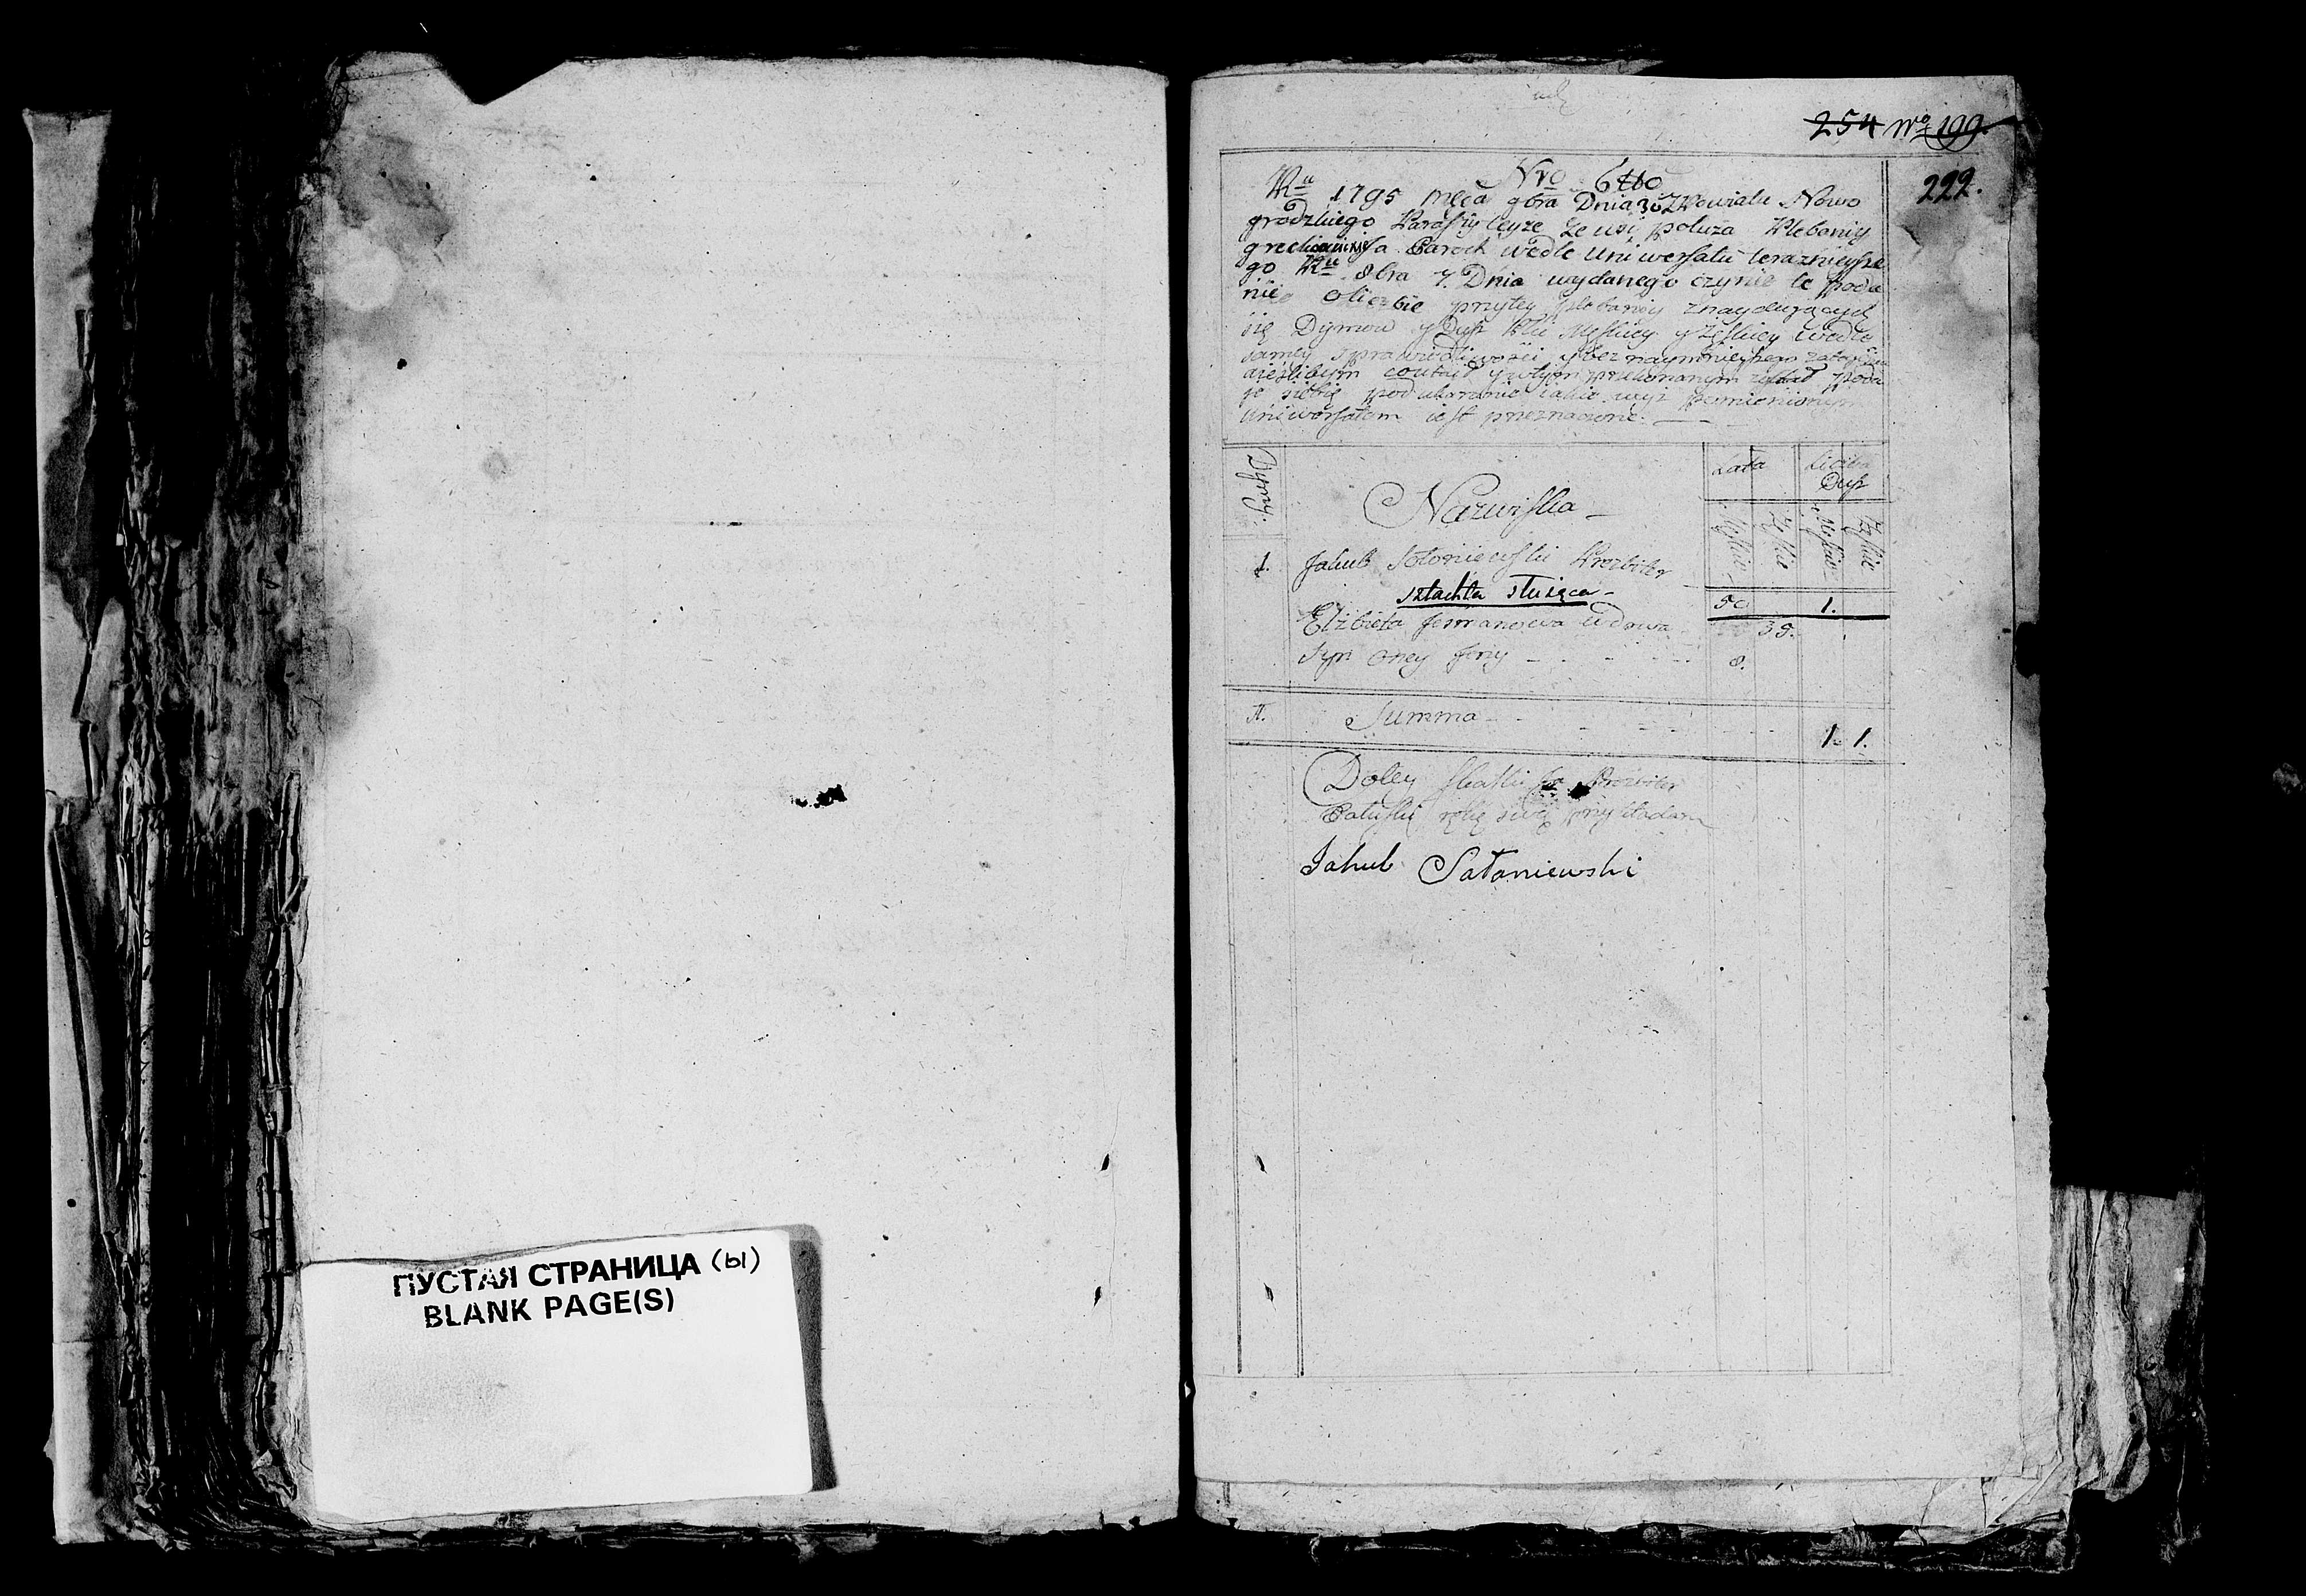 ПУСТАЯ СТРАНИЦА (ы)
BLANK PAGE(S)
254 Nro 199.
222.
Nro 6to
Ru 1795 Mca 9bra Dnia 30 Z Powiatu Nowo
grodzkiego Parafij teyze ze wsi Pleban̄ij
Paroch wedle Uniwersału teraznieysze
go Ru 8bra 7. Dnia wydanego czynie te poda
nie o liczbie przy tey plebanij znayduiących
się Dymow y Dusz Płci Męskiey y Żęskiey wedle
samey sprawiedliwości y bez naymnieyszego zataienia
przekonanym został poda
ie siebie pod ukaranie iakie wyż pomienionym
Uniwersałem iest przeznaczone.
Dymy.
Nazwiska
Lata
Liczba
Dusz
Męskie
Żęskie
Męskie
Żęskie
1. Jakub Sołoniewski Prezbiter 50 1.
szlachta służąca
Elżbieta wdowa 35.
Syn oney 8.
1. Summa 1. 1.
Do tey Skaski ja Prezbiter
rękę swą przykładam
Jakub Sałaniewski